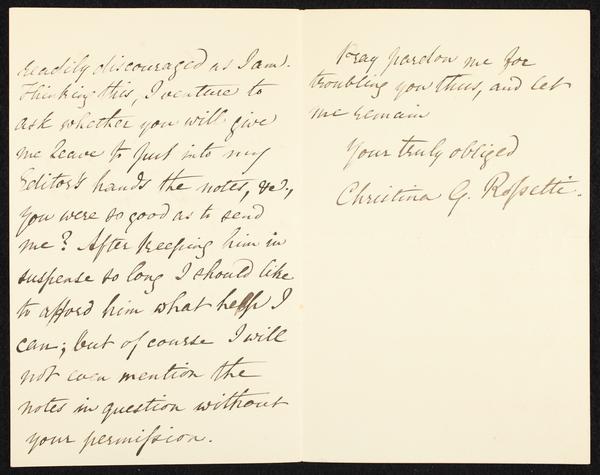 readily discouraged as I am.
Thinking this, I venture to
ask whether you will give
me leave to put into my
Editor's hands the notes, &c.,
you were so good as to send
me? After keeping him in
suspense so long I should like
to afford him what help I
can; but of course I will
not even mention the
notes in question without
your permission.
Pray pardon me for
troubling you thus, and let
me remain
Your truly obliged
Christina G. Rossetti.